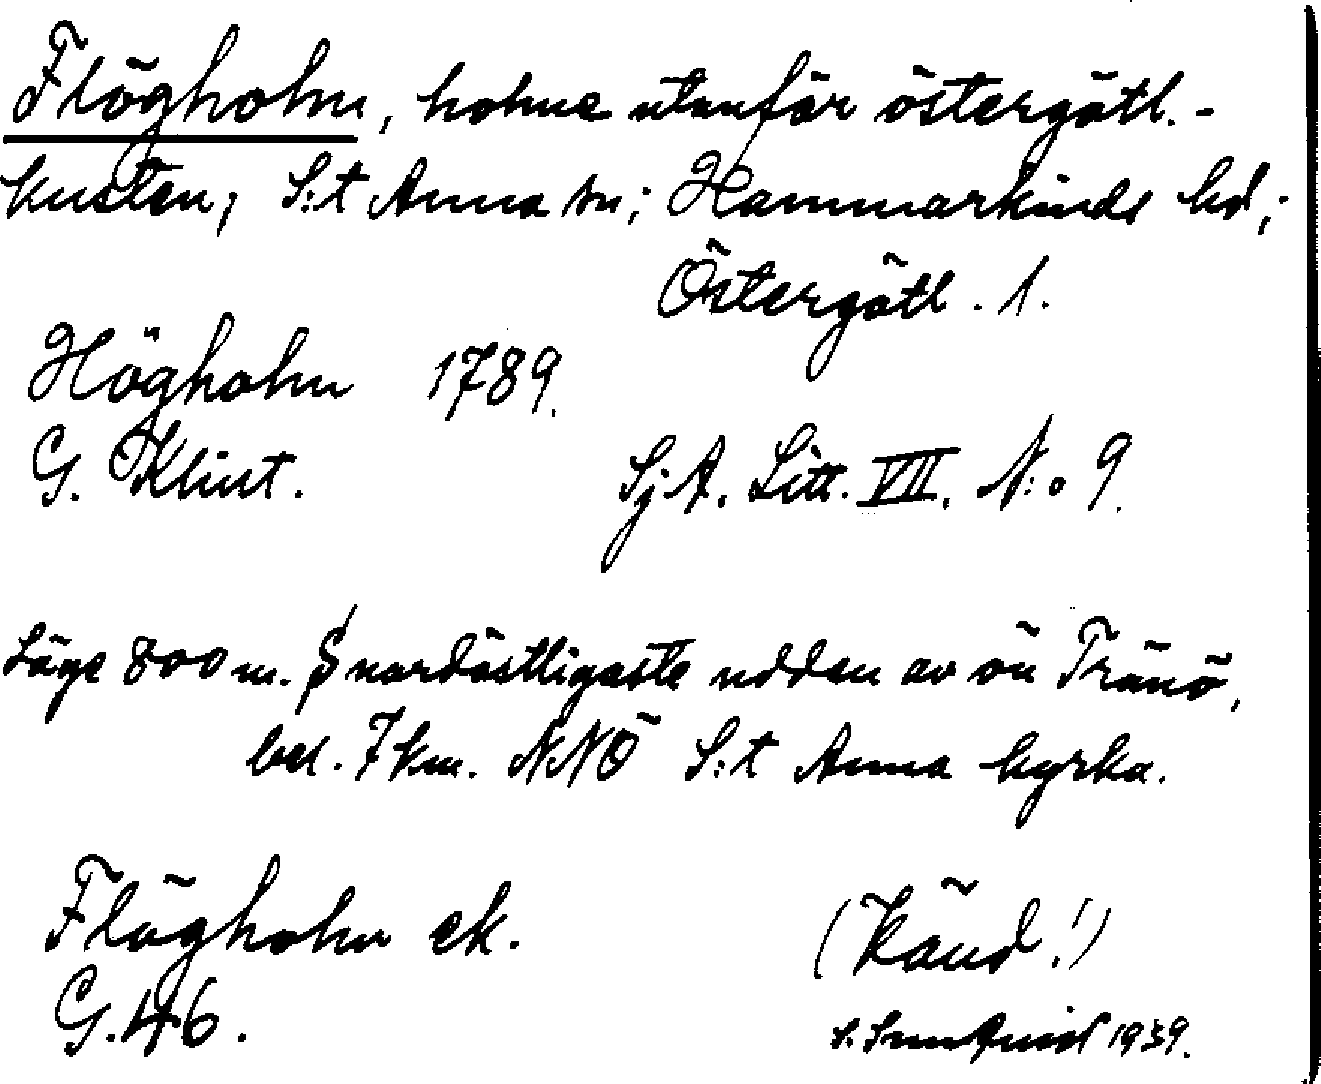 Flögholm, holme utanför östergötl.-
kusten; S:t Anna sn; Hammarkinds hd;
Östergötl. l.
Högholm 1789.
G. Klint. Sj. A. Litt. VII. N:o 9.
Läge 800 m. S nordöstligaste udden av ön Tränö,
bel. 7 km. NNÖ S:t Anna kyrka.
Flögholm ek. (Känd!)
G. 46. S. 1939.